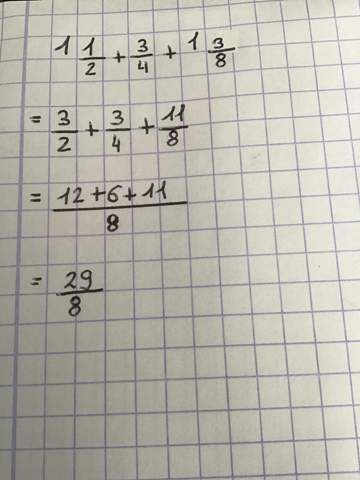 1 1/2 + 3/4 + 1 3/8
= 3/2 + 3/4 + 11/8
= 12+6+11/8
= 29/8